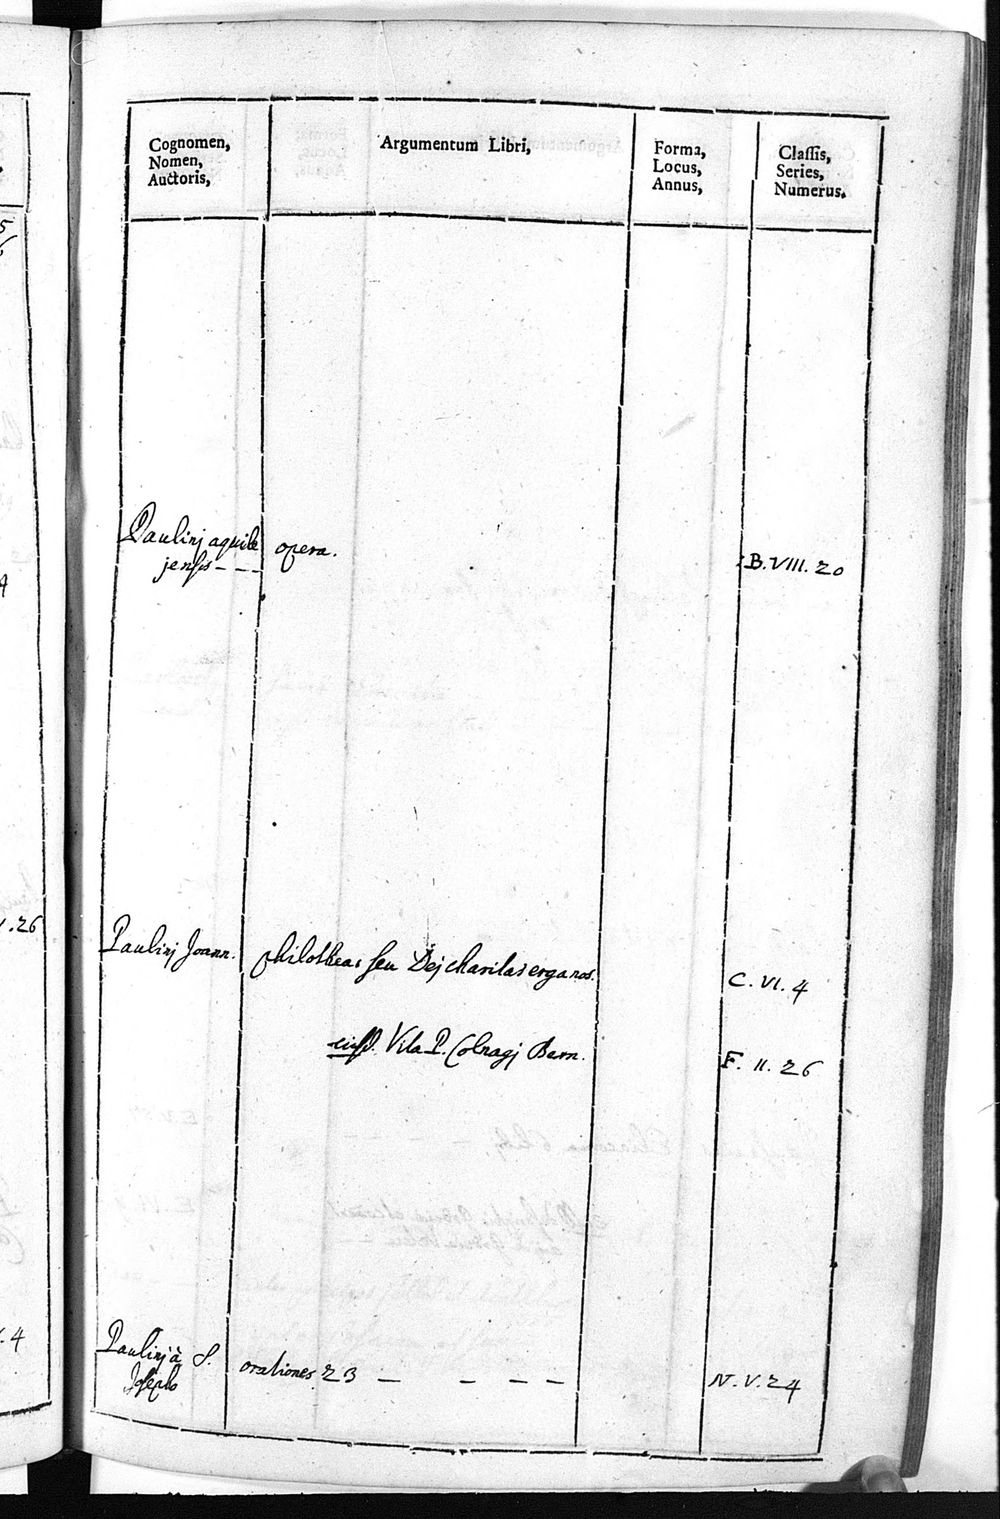 Cognomen,
Nomen,
Auctoris,
Argumentum Libri,
Forma,
Locus,
Annus,
Classis,
Series,
Numerus.
Paulinj aquile
jensis - - -
opera.
B. VIII. 20
Paulinj Joann.
philothea, seu Dej charitas erga nos.
C. VI. 4
eiusd. Vita P. Colnagj Barn.
F. II. 26
Paulinj à S.
Josepho
orationes 23 - - - -
N. V. 24
.26
.4